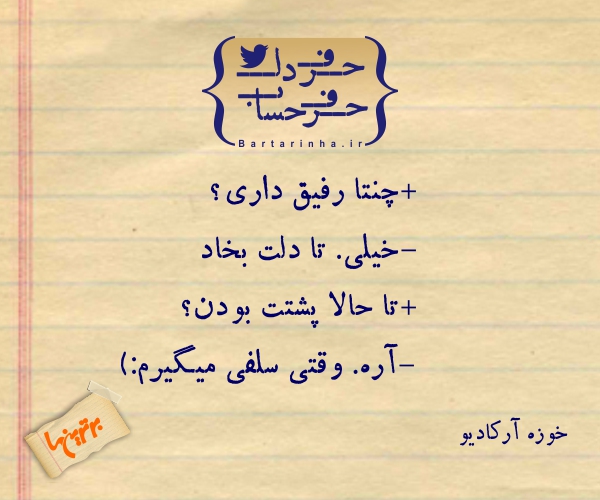 حرف دل
حرف حساب
Bartarinha.ir
+چنتا رفیق داری؟
-خیلی. تا دلت بخاد
+تا حالا پشتت بودن؟
-آره. وقتی سلفی میگیرم:)
خوزه آرکادیو
برترین‌ها